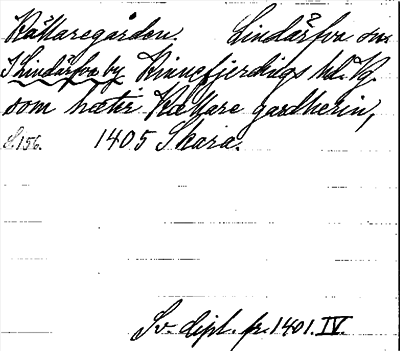 Rättaregården. Lindärfva sn
I Lindärfva by Kinnefjerdings hd. Vg.
som hæter Rættare gardherin,
S. 156. 1405 Skara.
Sv. dipl. fr. 1401. IV.